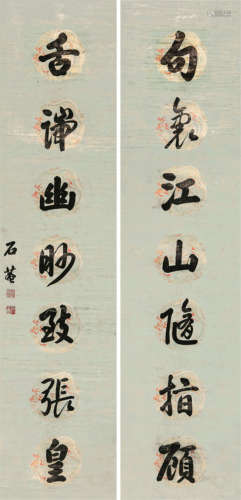 句裏江山隨指顧
舌端幽眇致張皇
石菴